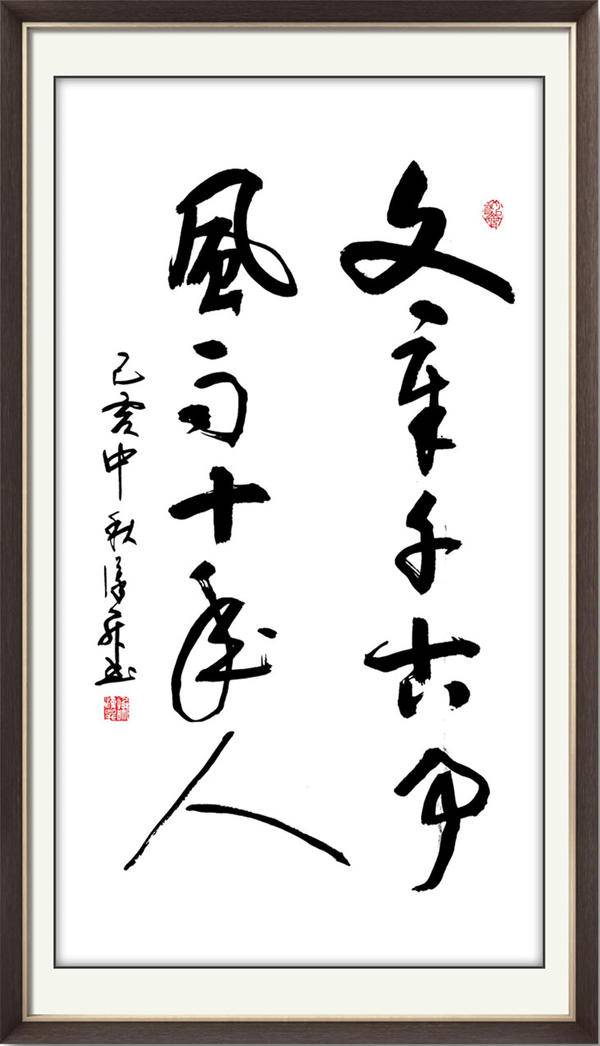 文章千古事
風雨十年人
己亥中秋 书